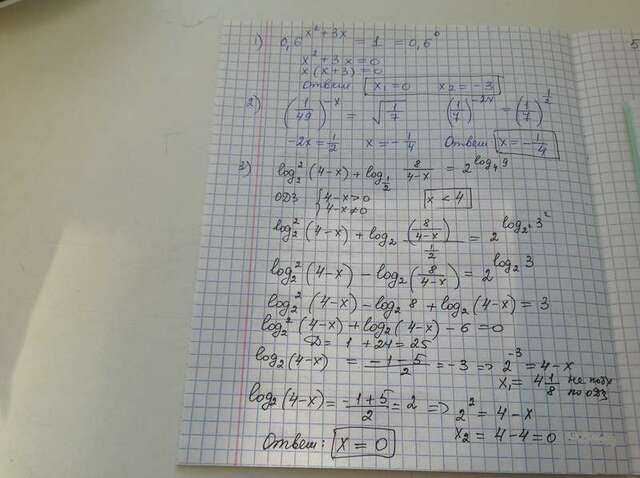 1) 0,6^(x²+3x) = 1 = 0,6⁰
x² + 3x = 0
x(x+3) = 0
Ответ x₁ = 0 x₂ = -3
2) (1/49)^(-x) = √(1/7) (1/7)^(-2x) = (1/7)^(1/2)
-2x = 1/2 x = -1/4 Ответ x = -1/4
3) log₂²(4-x) + log_(1/2) 8/(4-x) = 2^(log₄9)
ОДЗ { 4-x>0 4-x≠0 x < 4
log₂²(4-x) + log₂(8/(4-x)) / (1/2) = 2^(log_(2²)3²)
log₂²(4-x) - log₂(8/(4-x)) = 2^(log₂3)
log₂²(4-x) - log₂8 + log₂(4-x) = 3
log₂²(4-x) + log₂(4-x) - 6 = 0
D = 1 + 24 = 25
log₂(4-x) = (-1-5)/2 = -3 => 2^(-3) = 4-x
x₁ = 4 1/8 не по ОДЗ
log₂(4-x) = (-1+5)/2 = 2 => 2² = 4-x
x₂ = 4-4 = 0
Ответ: x = 0
5